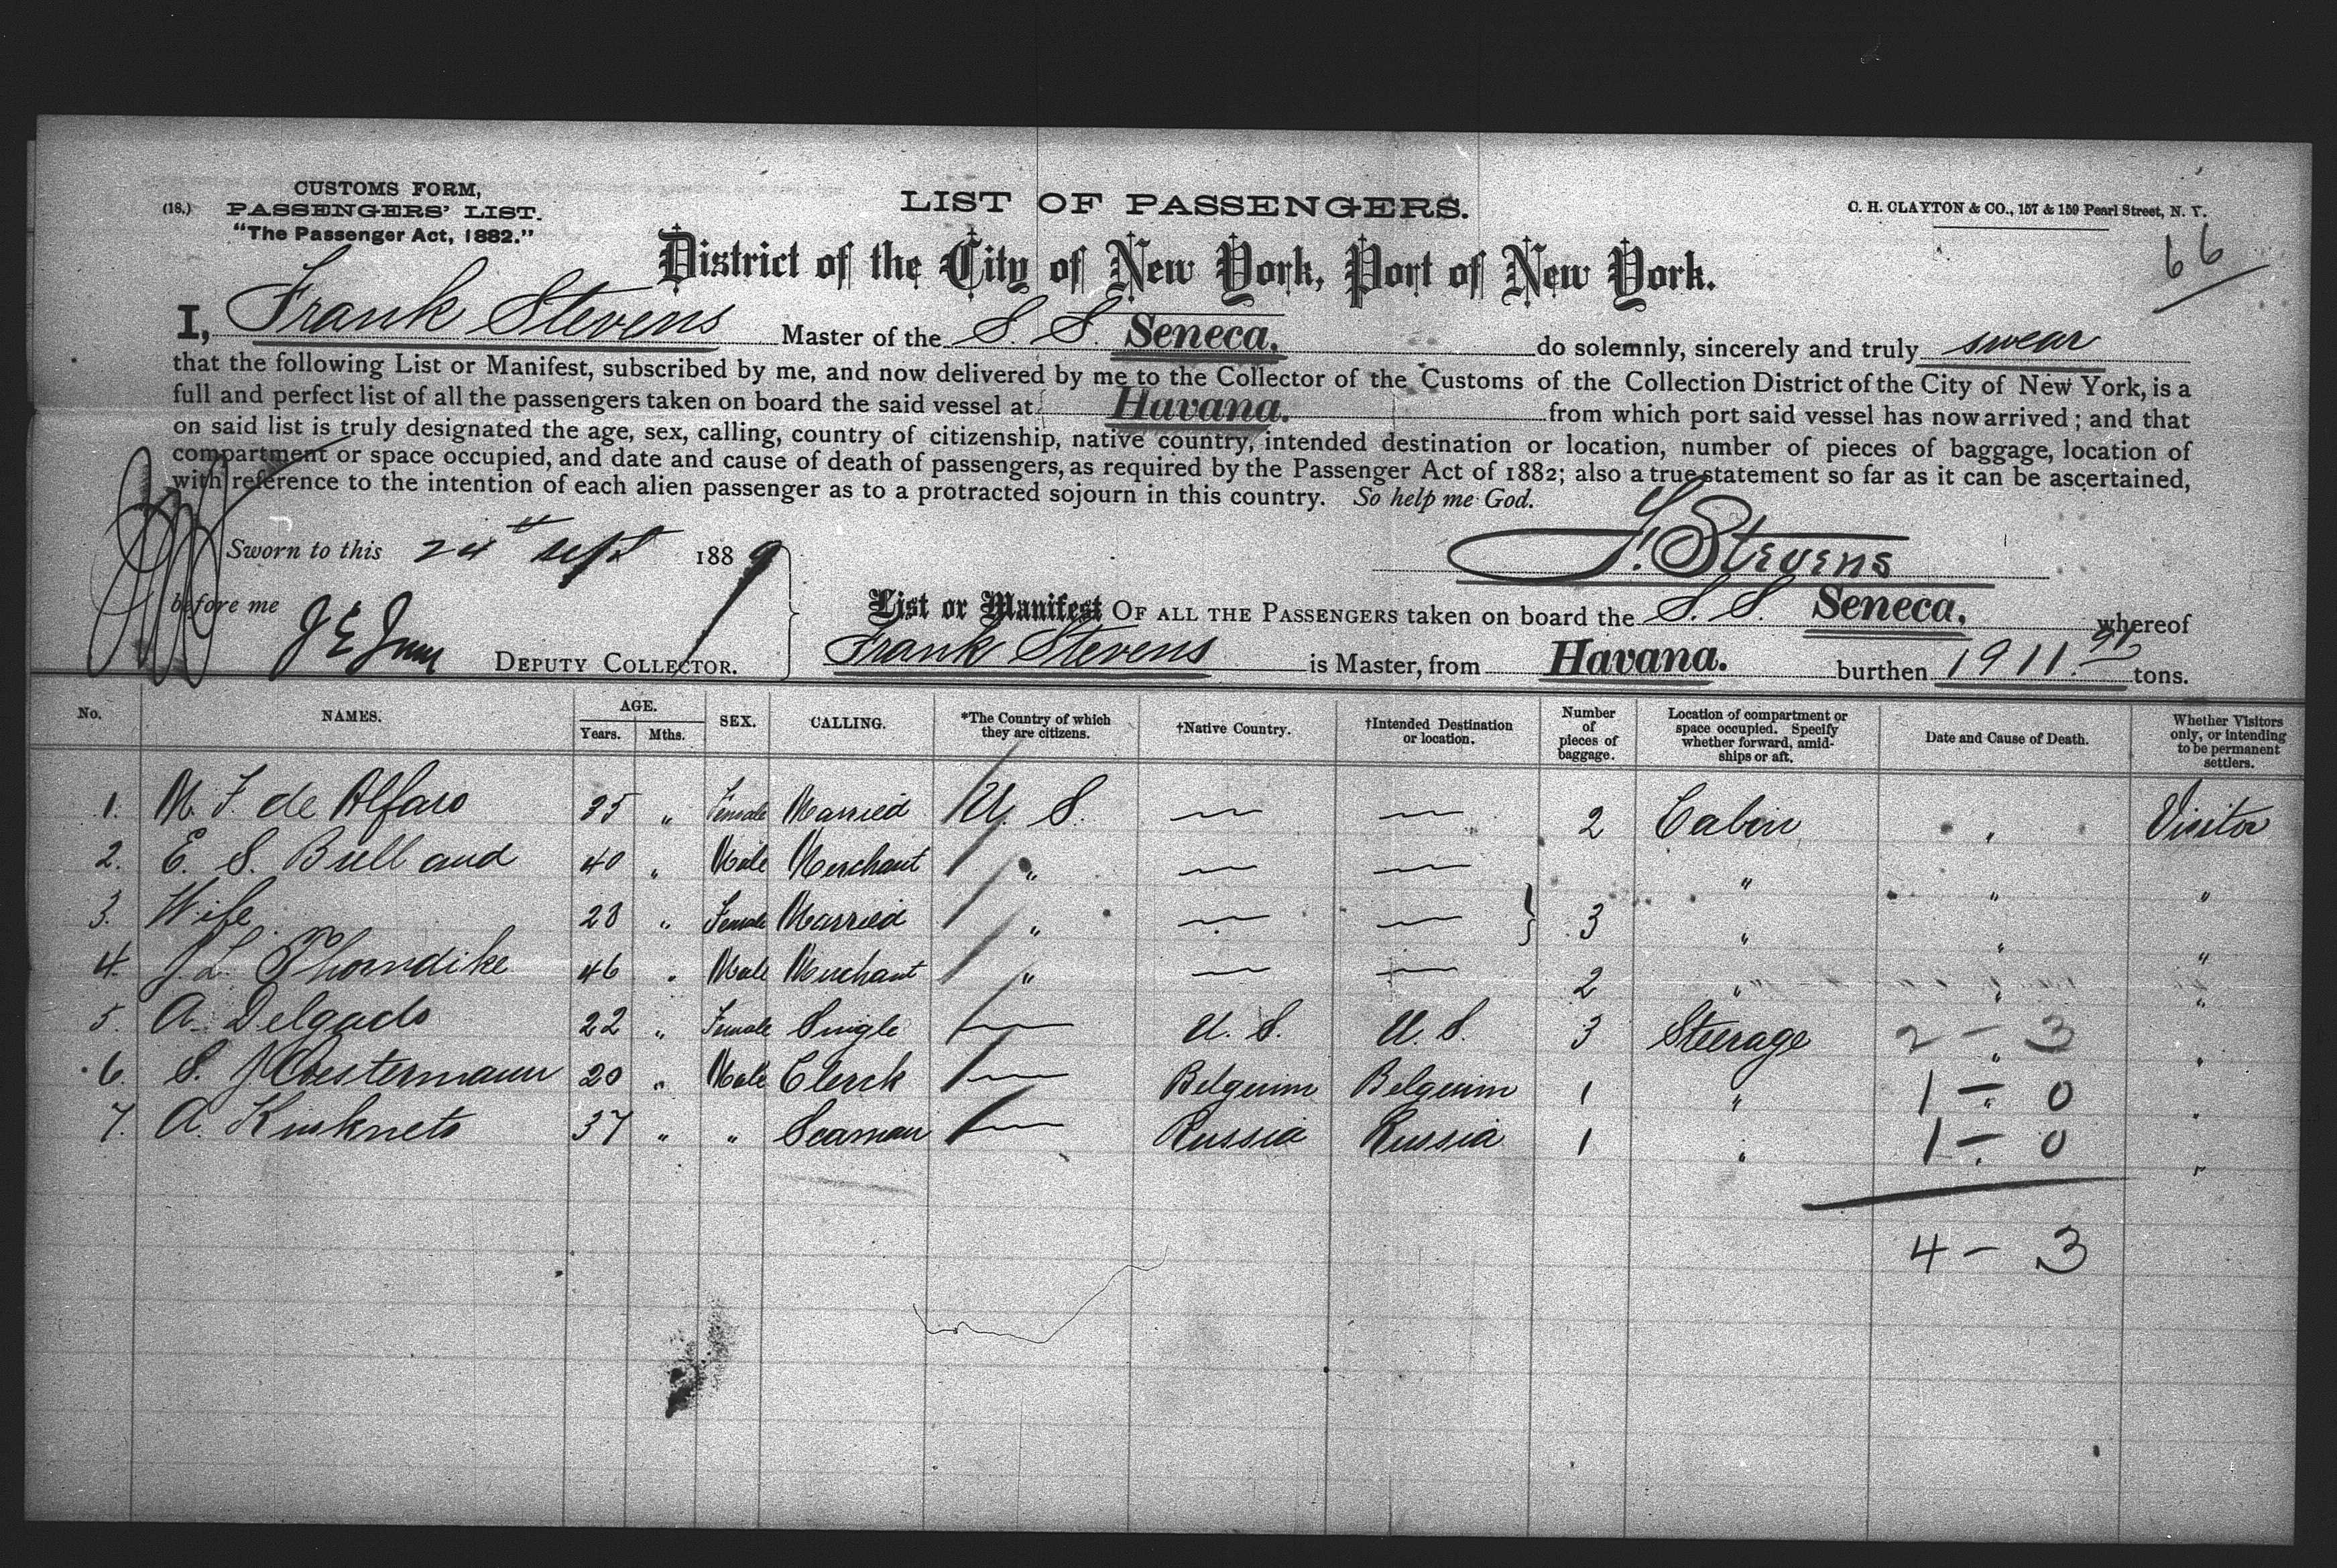 CUSTOMS FORM,
(18.) PASSENGERS' LIST.
"The Passenger Act, 1882."
LIST OF PASSENGERS.
C. H. CLAYTON & CO., 157 & 159 Pearl Street, N. Y.
66
District of the City of New York, Port of New York.
I, Frank Stevens Master of the S. S. Seneca, do solemnly, sincerely and truly swear
that the following List or Manifest, subscribed by me, and now delivered by me to the Collector of the Customs of the Collection District of the City of New York, is a
full and perfect list of all the passengers taken on board the said vessel at Havana. from which port said vessel has now arrived; and that
on said list is truly designated the age, sex, calling, country of citizenship, native country, intended destination or location, number of pieces of baggage, location of
compartment or space occupied, and date and cause of death of passengers, as required by the Passenger Act of 1882; also a true statement so far as it can be ascertained,
with reference to the intention of each alien passenger as to a protracted sojourn in this country. So help me God.
Sworn to this 24th Sept 1889
F. Stevens
before me
DEPUTY COLLECTOR.
List or Manifest OF ALL THE PASSENGERS taken on board the S. S. Seneca, whereof
Frank Stevens is Master, from Havana. burthen 1911. tons.
No. NAMES. AGE. Years. Mths. SEX. CALLING. *The Country of which they are citizens. †Native Country. †Intended Destination or location. Number of pieces of baggage. Location of compartment or space occupied. Specify whether forward, amidships or aft. Date and Cause of Death. Whether Visitors only, or intending to be permanent settlers.
1. M. F. de Alfaro 35 " Female Married U. S. — — 2 Cabin " Visitor
2. E. S. Bull and 40 " Male Merchant " — — " " "
3. Wife 28 " Female Married " — — } 3 " " "
4. J. L. Thorndike 46 " Male Merchant " — — 2 " " "
5. A. Delgado 22 " Female Single — U. S. U. S. 3 Steerage " 2 - 3 "
6. S. Westermann 20 " Male Clerk — Belguim Belguim 1 " " 1 - 0 "
7. A. 37 " " Seaman — Russia Russia 1 " " 1 - 0 "
4 - 3